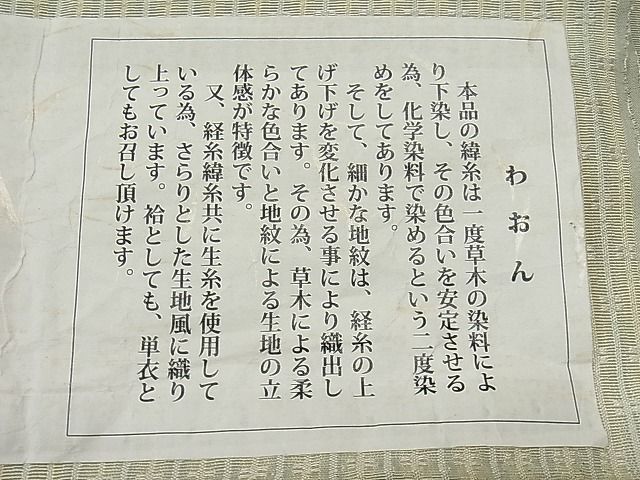 わおん
本品の緯糸は一度草木の染料によ
り下染し、その色合いを安定させる
為、化学染料で染めるという二度染
めをしてあります。
そして、細かな地紋は、経糸の上
げ下げを変化させる事により織出し
てあります。その為、草木による柔
らかな色合いと地紋による生地の立
体感が特徴です。
又、経糸緯糸共に生糸を使用して
いる為、さらりとした生地風に織り
上っています。袷としても、単衣と
してもお召し頂けます。